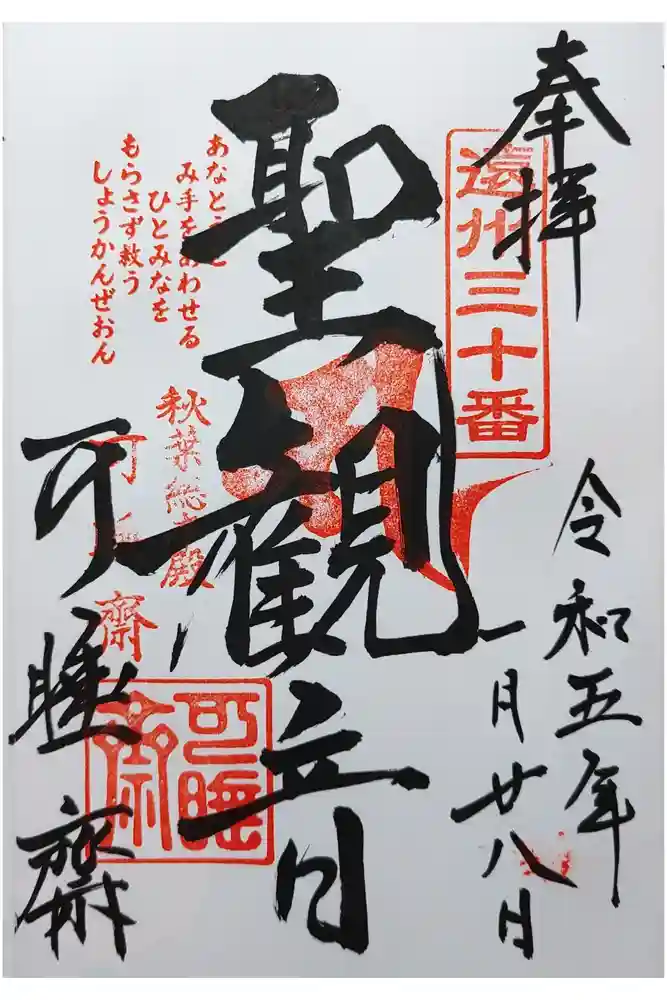 奉拝
遠州三十番
令和五年
一月廿八日
聖観立日
あなとうと
み手をあわせる
ひとみなを
もらさず救う
しょうかんぜおん
秋葉総本殿
可睡齋
可睡齋
可睡齋